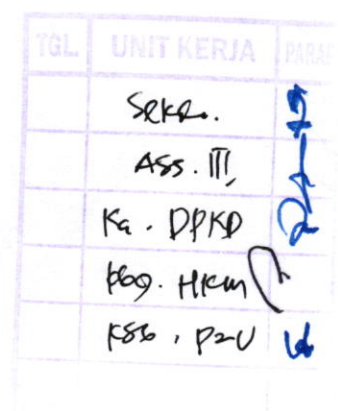 TGL. UNIT KERJA PARAF
Sekr.
Ass. III,
Ka. DPKD
Kbg. HKum
KSb. P2U